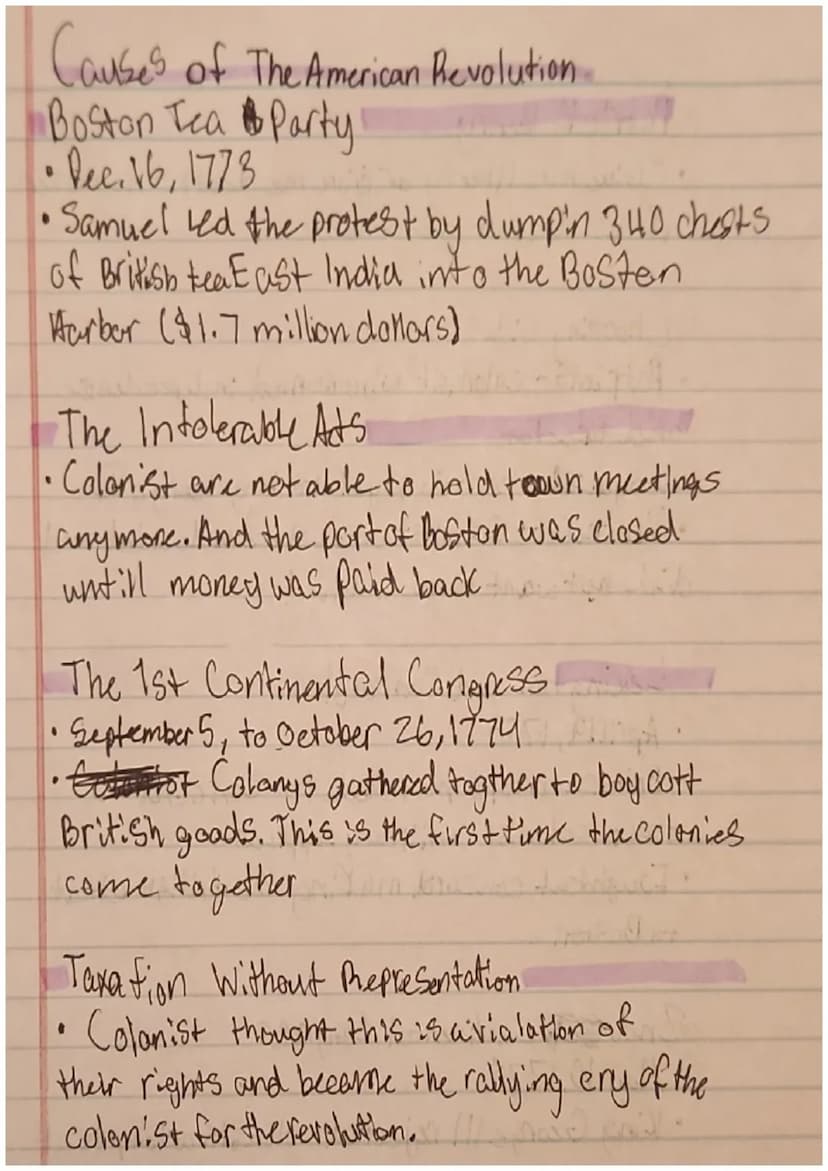 Causes of The American Revolution
Boston Tea Party
• Dec. 16, 1773
• Samuel led the protest by dump'n 340 chests
of British tea East India into the Bosten
Harbor ($1.7 million dollars)
The Intolerable Acts
• Colonist are not able to hold town meetings
anymore. And the port of Boston was closed
untill money was paid back
The 1st Continental Congress
• September 5, to October 26, 1774
• Colanys gathered togther to boycott
British goods. This is the first time the colonies
come together
Taxation Without Representation
• Colonist thought this is a vialation of
their rights and became the rallying cry of the
colonist for the revolution.